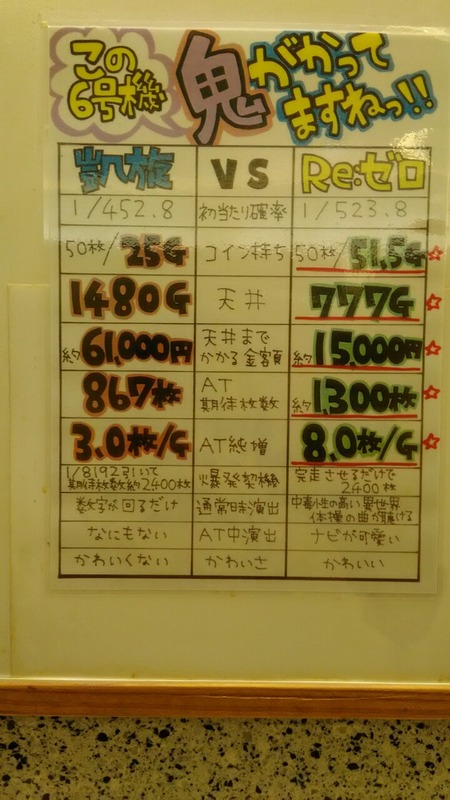 この
6号機
鬼がかって
ますねっ!!
凱旋 VS Re:ゼロ
1/452.8 初当たり確率 1/523.8
50枚/25G コイン持ち 50枚/51.5G ☆
1480G 天井 777G ☆
約61,000円 天井まで かかる金額 約15,000円 ☆
867枚 AT 期待枚数 約1,300枚 ☆
3.0枚/G AT純増 8.0枚/G ☆
1/8192引いて
期待枚数約2400枚
爆発契機
完走させるだけで
2400枚
数字が回るだけ
通常時演出
中毒性の高い異世界
体操の曲が聴ける
なにもない AT中演出 ナビが可愛い
かわいくない かわいさ かわいい